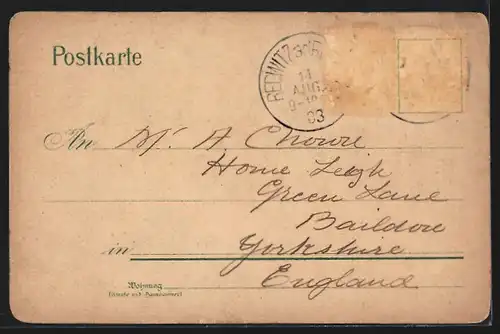 Postkarte
REDWITZ a/R
14
AUG
9-10
03
An Mr A Chowre
Home Leigh
Green Lane
Baildon
in Yorkshire
England
Wohnung
(Straße und Hausnummer)